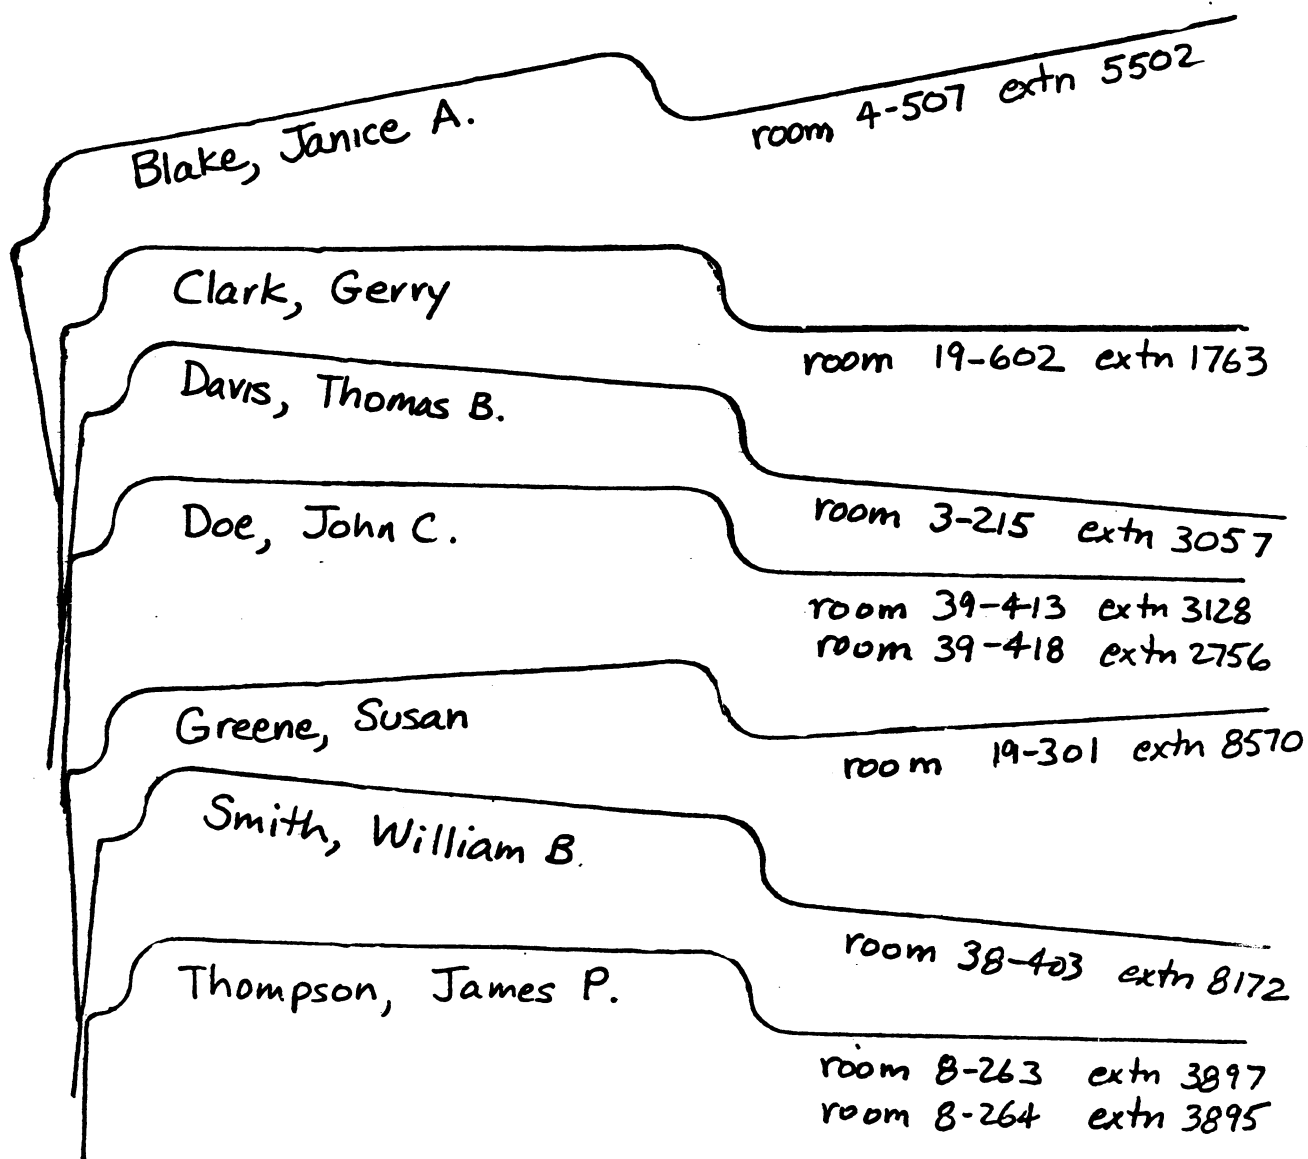 Blake, Janice A.
room 4-507 extn 5502
Clark, Gerry
room 19-602 extn 1763
Davis, Thomas B.
room 3-215 extn 3057
Doe, John C.
room 39-413 extn 3128
room 39-418 extn 2756
Greene, Susan
room 19-301 extn 8570
Smith, William B.
room 38-403 extn 8172
Thompson, James P.
room 8-263 extn 3897
room 8-264 extn 3895